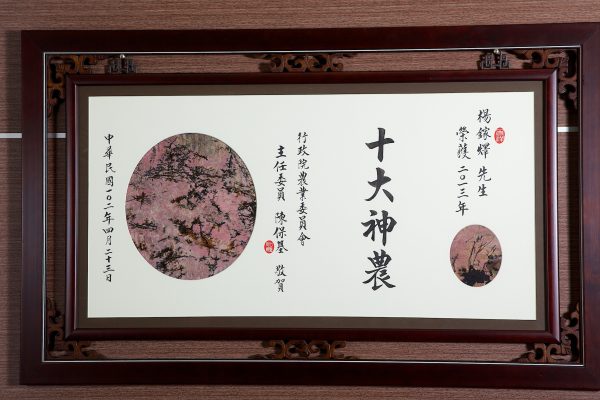 楊鎵煇 先生
榮獲 二〇一三年
十大神農
行政院農業委員會
主任委員 陳保基 敬賀
中華民國一〇二年四月二十三日